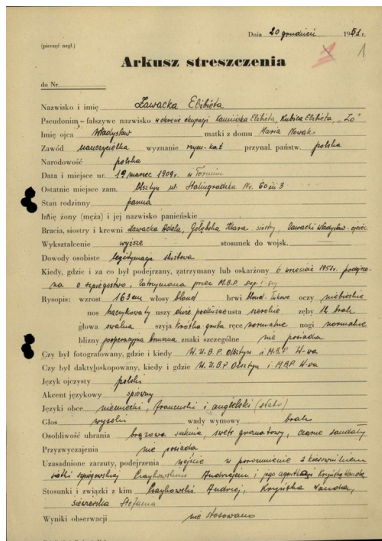 Dnia 20 grudnień 1951 r.
(pieczęć nagł.)
1
Arkusz streszczenia
do Nr
Nazwisko i imię Zawacka Elżbieta
Pseudonim – fałszywe nazwisko w okresie okupacji Kamińska Elżbieta, Kubica Elżbieta, "Zo"
Imię ojca Władysław matki z domu Maria Nowak
Zawód nauczycielka wyznanie rzym. kat przynal. państw. polska
Narodowość polska
Data i miejsce ur. 19 marzec 1909 r. w Toruniu
Ostatnie miejsce zam. Olsztyn ul. Stalingradzka Nr.
Stan rodzinny panna
Imię żony (męża) i jej nazwisko panieńskie
Bracia, siostry i krewni Zawacka Adela, Klara, siostry Zawacki Władysław, ojciec
Wykształcenie wyższe stosunek do wojsk.
Dowody osobiste legitymacja służbowa
Kiedy, gdzie i za co był podejrzany, zatrzymany lub oskarżony 6 wrzesień 1951 r.
o szpiegostwo, zatrzymana przez M.B.P.
Rysopis: wzrost 163 cm włosy blond brwi blond oczy niebieskie
nos haczykowaty uszy duże szerokie zęby brak
głowa owalna szyja krótka gruba ręce normalne nogi normalne
blizny znaki szczególne nie posiada
Czy był fotografowany, gdzie i kiedy W.U.B.P. Olsztyn i M.B.P. W-wa
Czy był daktyloskopowany, kiedy i gdzie W.U.B.P. Olsztyn i M.B.P. W-wa
Język ojczysty polski
Akcent językowy
Języki obce niemiecki, francuski i angielski (słabo)
Głos wysoki wady wymowy brak
Osobliwość ubrania brązowa suknia, swetr granatowy, czarne sandały
Przyzwyczajenia nie posiada
Uzasadnione zarzuty, podejrzenia wejście w porozumienie z
siatki szpiegowskiej Andrzejem i jego
Stosunki i związki z kim Andrzej, Wanda,
Stefania
Wyniki obserwacji nie stosowano